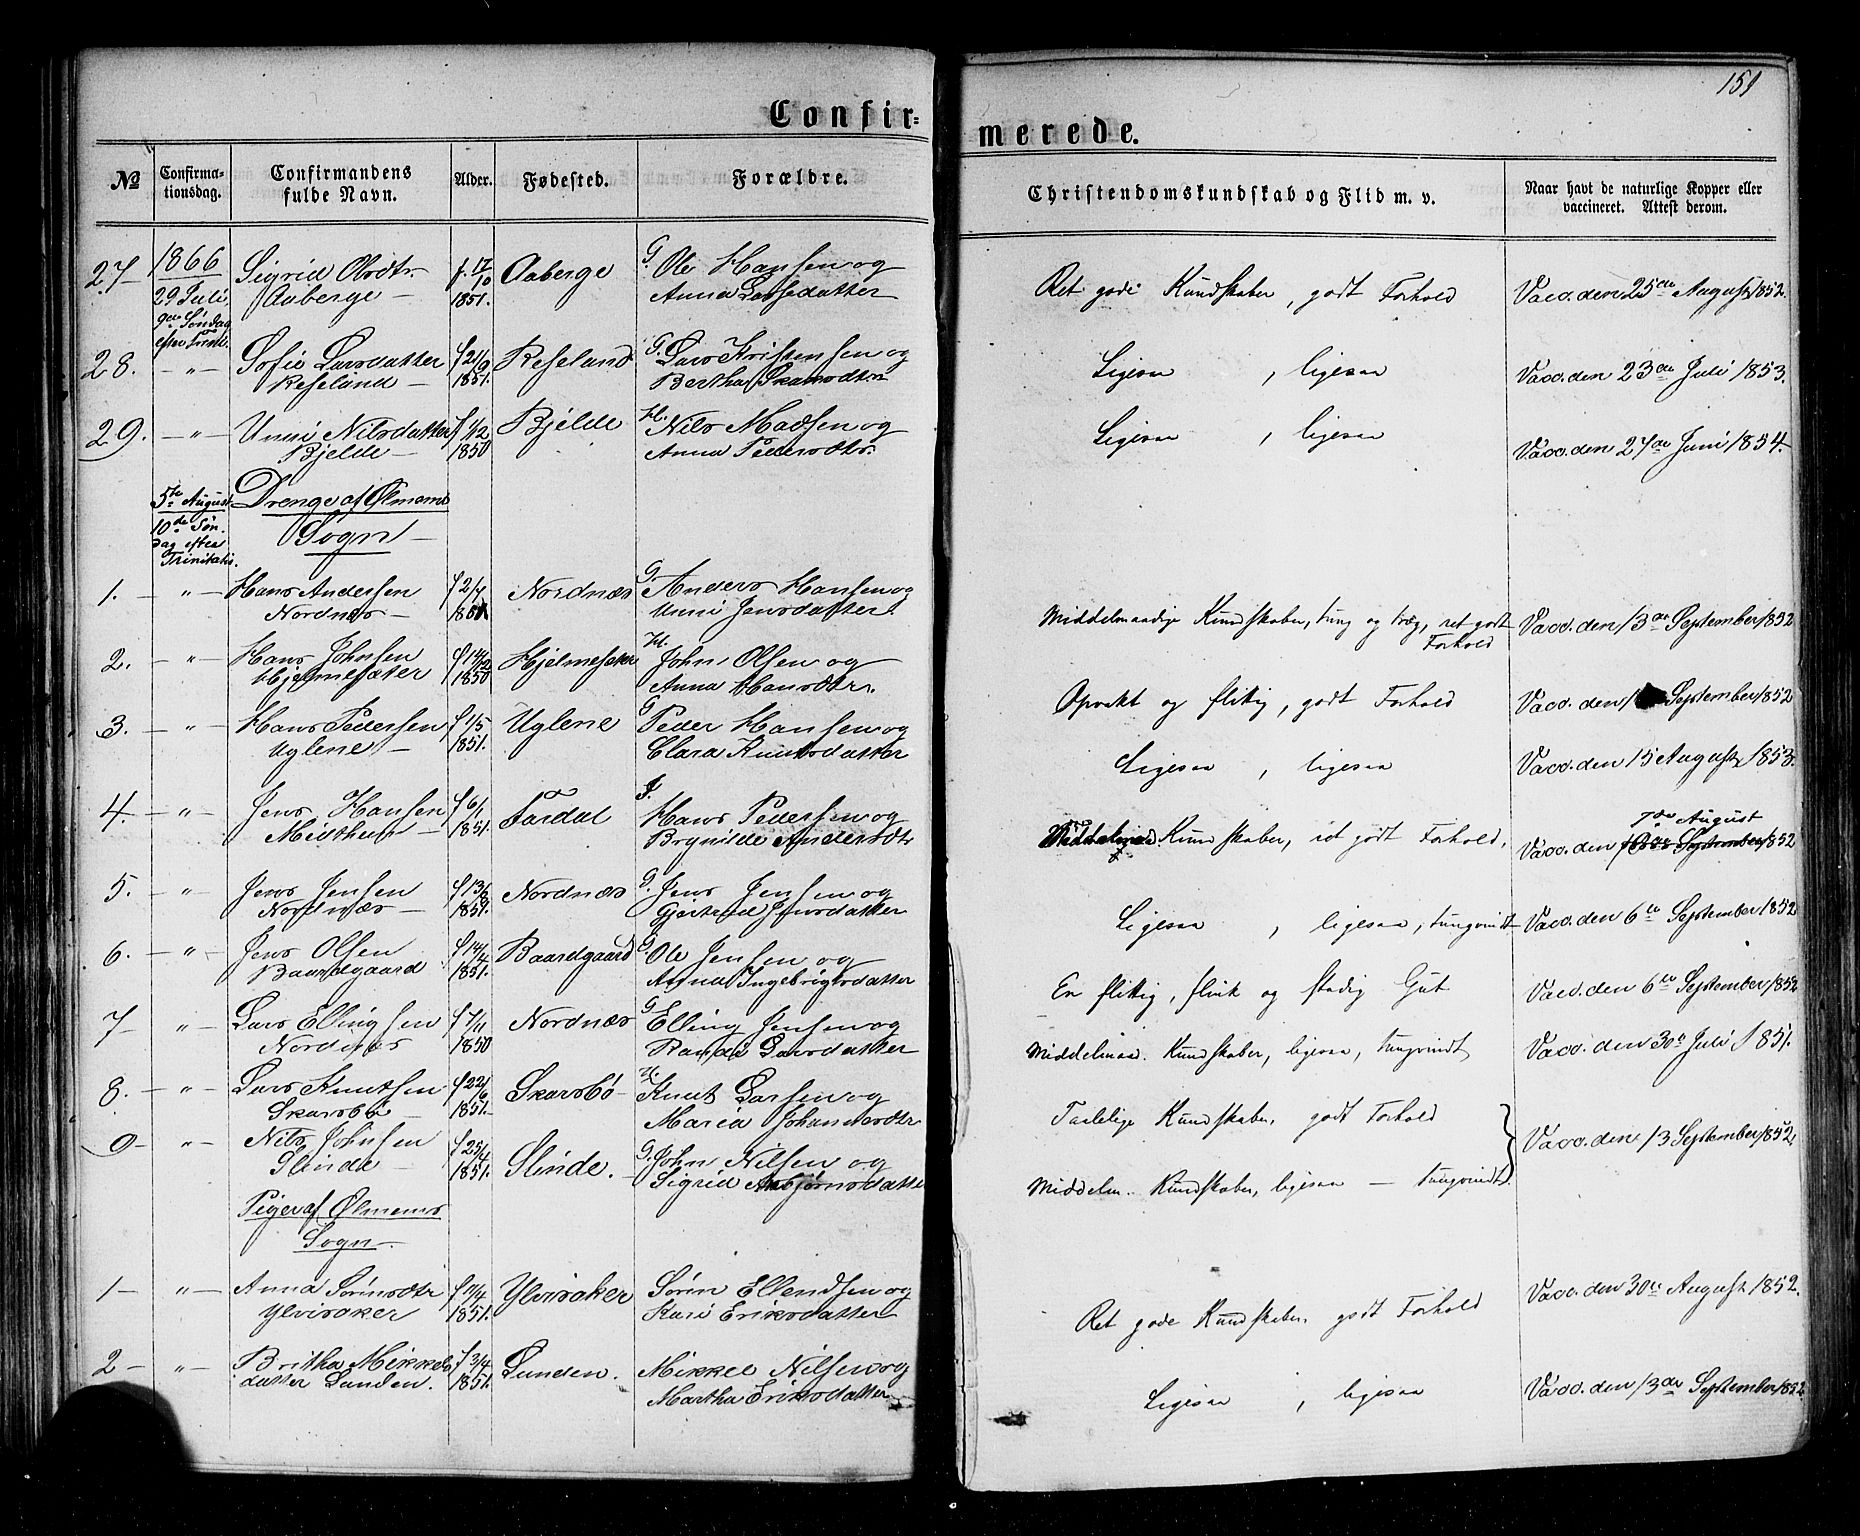 151
Confirmerede.
No
Confirmationsdag.
Confirmandens fulde Navn.
Alder.
Fødested.
Forældre.
Christendomskundskab og Flid m. v.
Naar havt de naturlige Kopper eller vaccineret. Attest derom.
27 1866 Sigrid Olsdtr. f. 17/10 Aaberge G. Ole Hansen og Ret gode Kundskaber, godt Forhold Vacc. den 25de August 1852.
29 Juli Aaberge 1851. Anna Larsdatter
9de Søndag
efter Trinit.
28. — " — Sofie Larsdatter f 21/9 Reseland G. Lars Kristensen og Ligesaa, ligesaa Vacc. den 23de Juli 1853.
Reseland 1851. Bertha
29. — " — Unni Nilsdatter f 1/12 Bjelde H. Nils Madsen og Ligesaa, ligesaa Vacc. den 27de Juni 1854.
Bjelde 1850 Anna Pedersdtr.
5te August Drenge af Ølmems
10de Søn- Sogn
dag efter
Trinitatis.
1. — " — Hans Andersen f 2/7 Nordnæs G. Anders Hansen og Middelmaadige Kundskaber, tung og træg, ret godt Vacc. den 13de September 1852
Nordnæs Unni Jensdatter Forhold
2. — " — Hans Johnsen f 14/12 Hjelmesæter H. John Olsen og Opvakt og flittig, godt Forhold Vacc. den September 1852
Hjelmesæter 1850 Anna Hansdtr.
3. — " — Hans Pedersen f 1/5 Uglene G. Peder Hansen og Ligesaa, ligesaa Vacc. den 15 August 1853.
Uglene 1851. Clara Knutsdatter
4. — " — Jens Hansen f 6/1 Fardal Hans Pedersen og Middelmaa. Kundskaber, ret godt Forhold, 7de August
Midthun 1851. Brynilde Andersdtr Vacc. den September 1852
5. — " — Jens Jensen f 13/ Nordnæs G. Jens Jensen og Ligesaa, ligesaa, tungvindt Vacc. den 6te September 1852
Nordnæs 1851. Gjertrud Jensdatter
6. — " — Jens Olsen f 14/4 Baardgaard G. Ole Jensen og En flittig, flink og stadig Gut Vacc. den 6te September 1852
Baardgaard 1851. Anna Ingebrigtsdatter
7 — " — Lars Ellingsen f 7/11 Nordnæs G. Elling Jensen og Middelmaa. Kundskaber, ligesaa, tungvindt Vacc. den 30te Juli 1851.
Nordnæs 1850 Randi Larsdatter
8. — " — Lars Knutsen f 22/6 Skarsbø Knut Larsen og Taalelige Kundskaber, godt Forhold Vacc. den 13 September 1852.
Skarsbø 1851. Maria Johannesdtr
9 — " — Nils Johnsen f 25/4 Slinde. G. John Nilsen og Middelm. Kundskaber, ligesaa — tungvindt
Slinde 1851. Sigrid Asbjørnsdatter
Piger af Ølmems
Sogn
1 — " — Anna Sørensdtr Ylvisaker Søren Ellendsen og Ret gode Kundskaber, godt Forhold Vacc. den 30te August 1852.
Ylvisaker 1851. Kari Eriksdatter
2 — " — Britha Mikkels- f 3/4 Lunden. Mikkel Nilsen og Ligesaa, ligesaa Vacc. den 13de September 1852
datter Lunden. 1851. Martha Eriksdatter